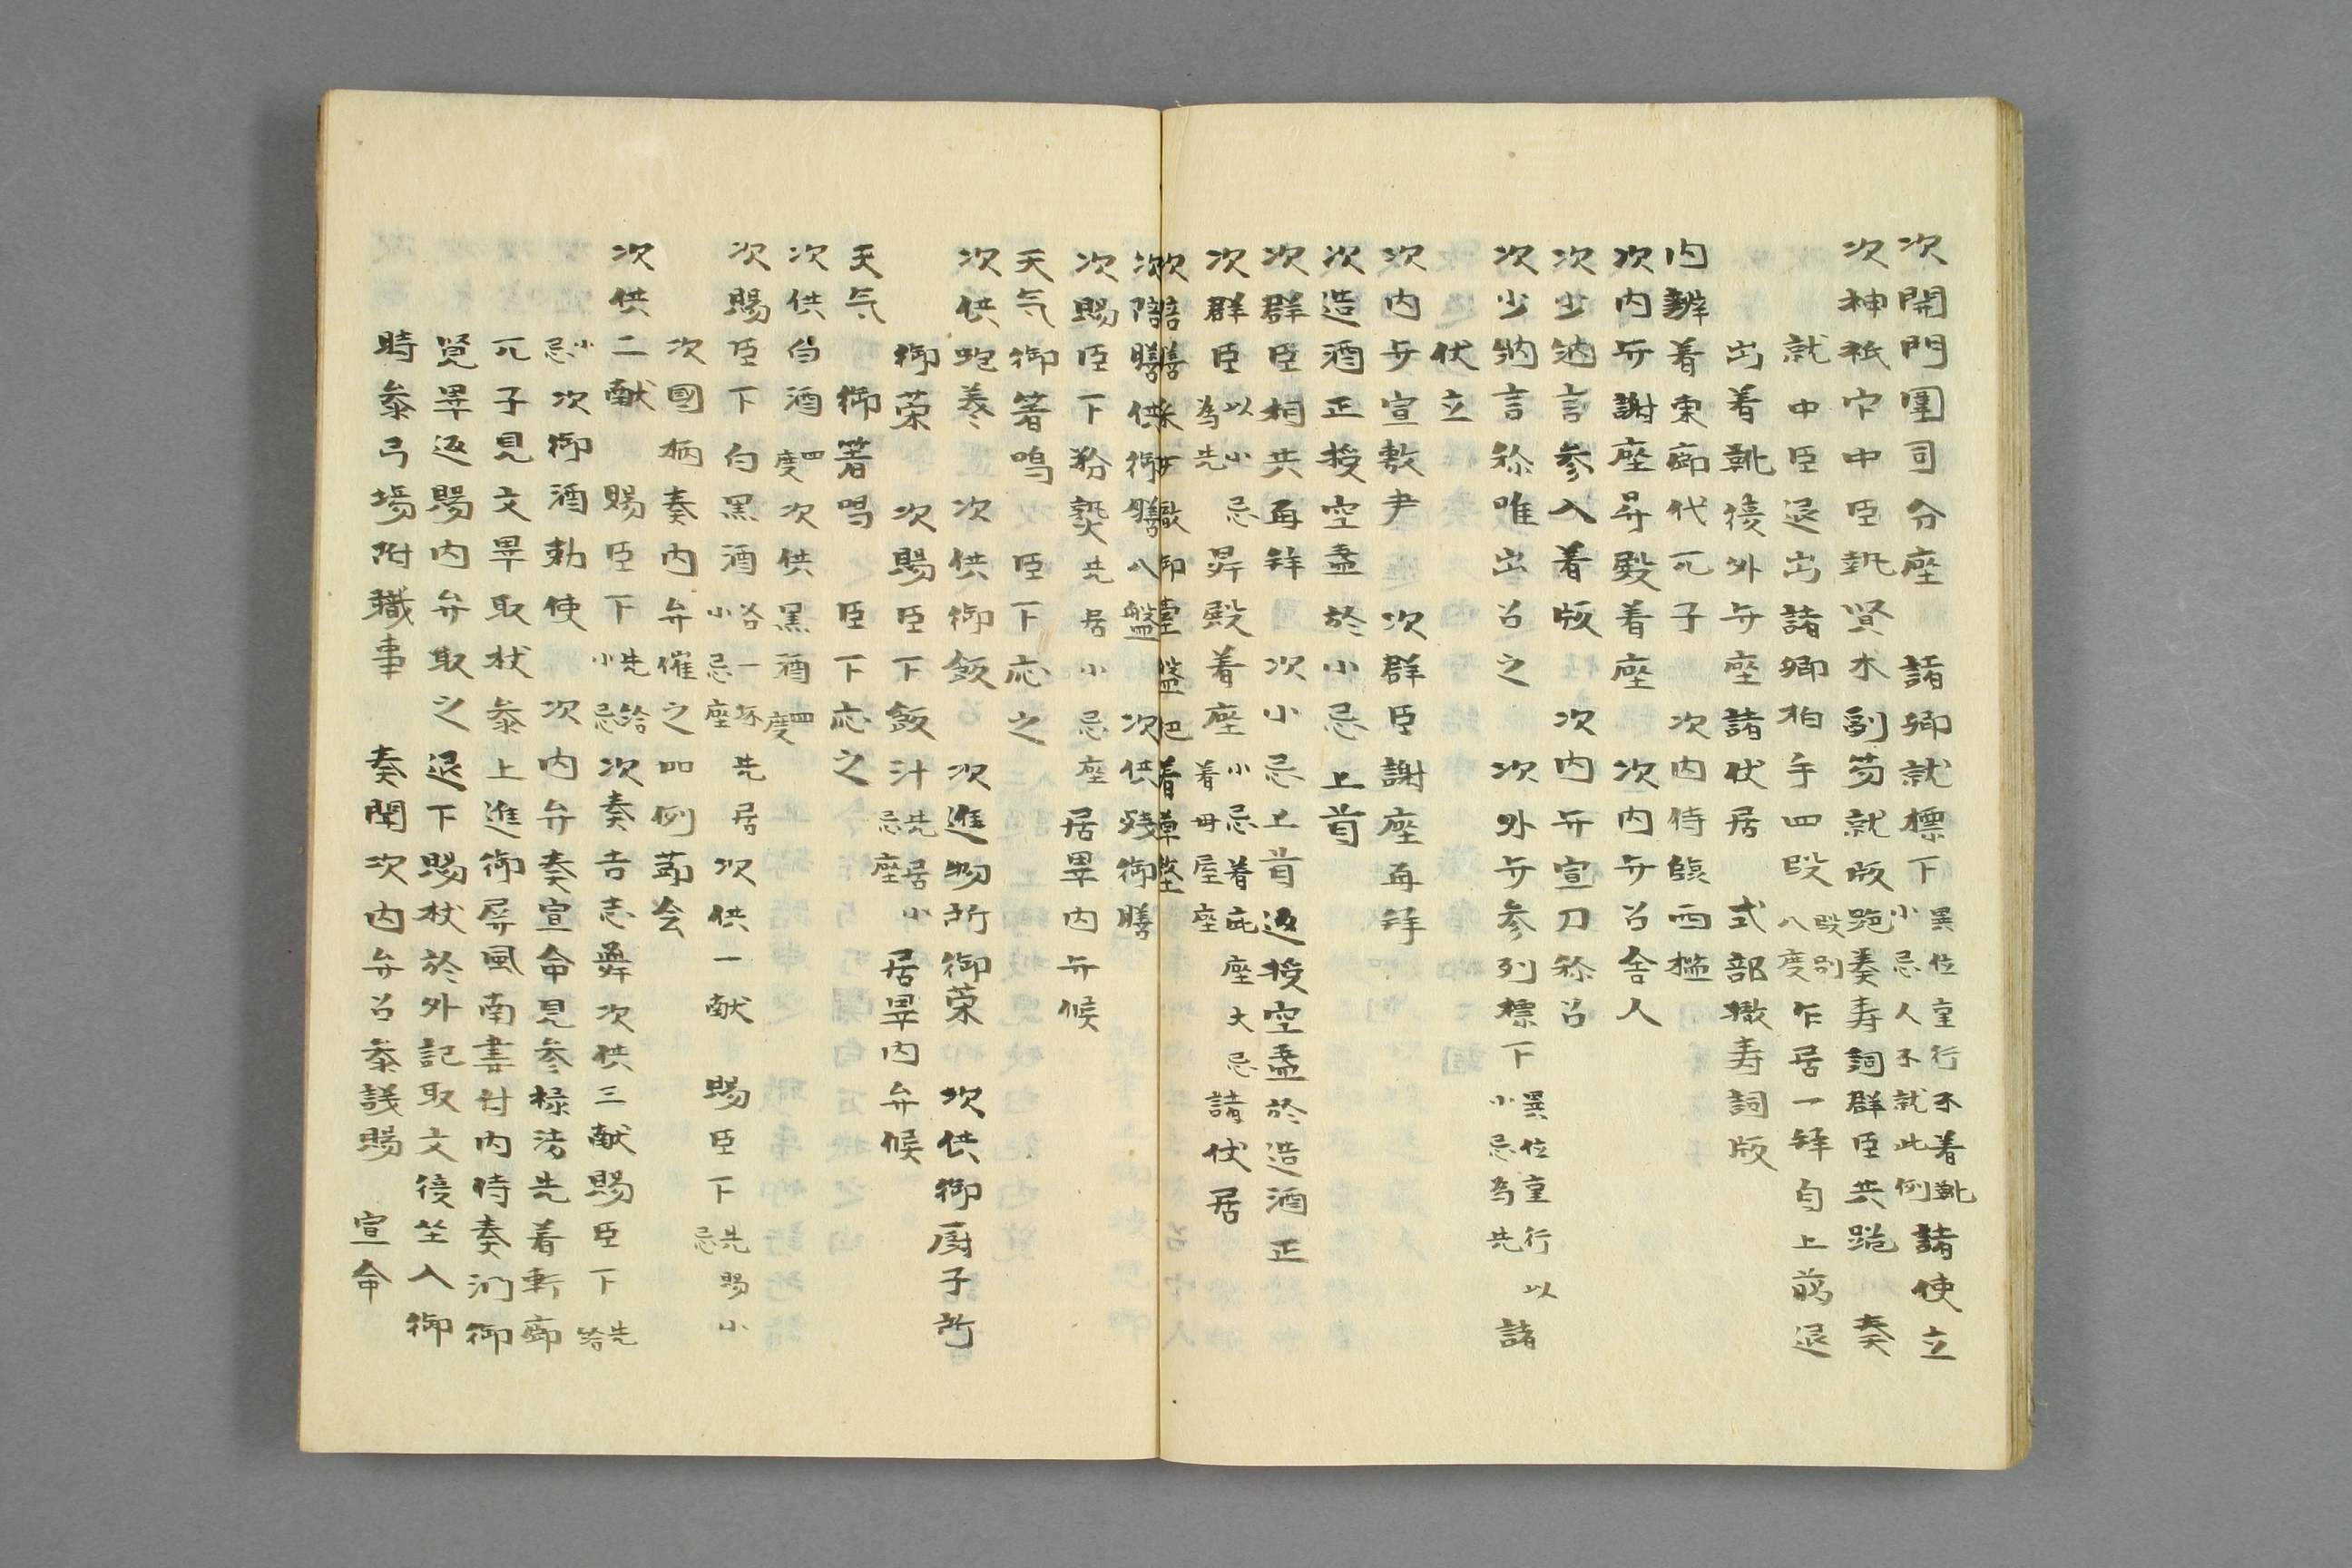 次開門闈司分座　諸卿就標下異位重行不着靴小忌人不就此例諸使立
次神祇官中臣執賢木副笏就版跪奏寿詞群臣共跪　奏
就中臣退出諸卿拍手四段段別八度乍居一拝自上﨟退
出着靴後外弁座諸伏居　式部撤寿詞版
内辨着東廊代兀子　次内侍臨西檻
次内弁謝座昇殿着座　次内弁召舎人
次少納言参入着版　次内弁宣刀祢召
次少納言称唯出召之　次外弁参列標下異位重行以小忌為先諸
伏立
次内弁宣敷尹　次群臣謝座再拝
次造酒正授空盞於小忌上首
次群臣相共再拝　次小忌上首返授空盞於造酒正
次群臣以小忌為先昇殿着座小忌着庇座大忌着母屋座諸伏居
次陪膳采女撤御臺盤帊着草墪
次陪膳供御膳八盤　次供残御膳
次賜臣下粉熟先居小忌座居畢内弁候
天气御箸鳴　臣下応之
次供蚫羹　次供御飯　次進物所御菜　次供御厨子所
御菜　次賜臣下飯汁先居小忌座居畢内弁候
天气　御箸鳴　臣下応之
次供白酒四度次供黒酒四度
次賜臣下白黒酒各一坏先居小忌座　次供一献　賜臣下先賜小忌
次國栖奏内弁催之如例節会
次供二献　賜臣下先給小忌次奏吉志舞次供三献賜臣下先給
小忌次御酒勅使　次内弁奏宣命見参禄法先着軒廊
兀子見文畢取杖参上進御屏風南妻付内侍奏御
覧畢返賜内弁取之　退下賜杖於外記取文復坐入御
時参弓場附職事　奏聞次内弁召参議賜　宣命